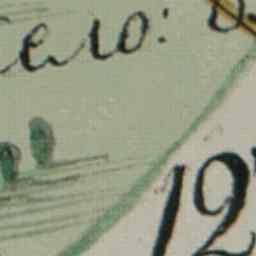 Село:
12